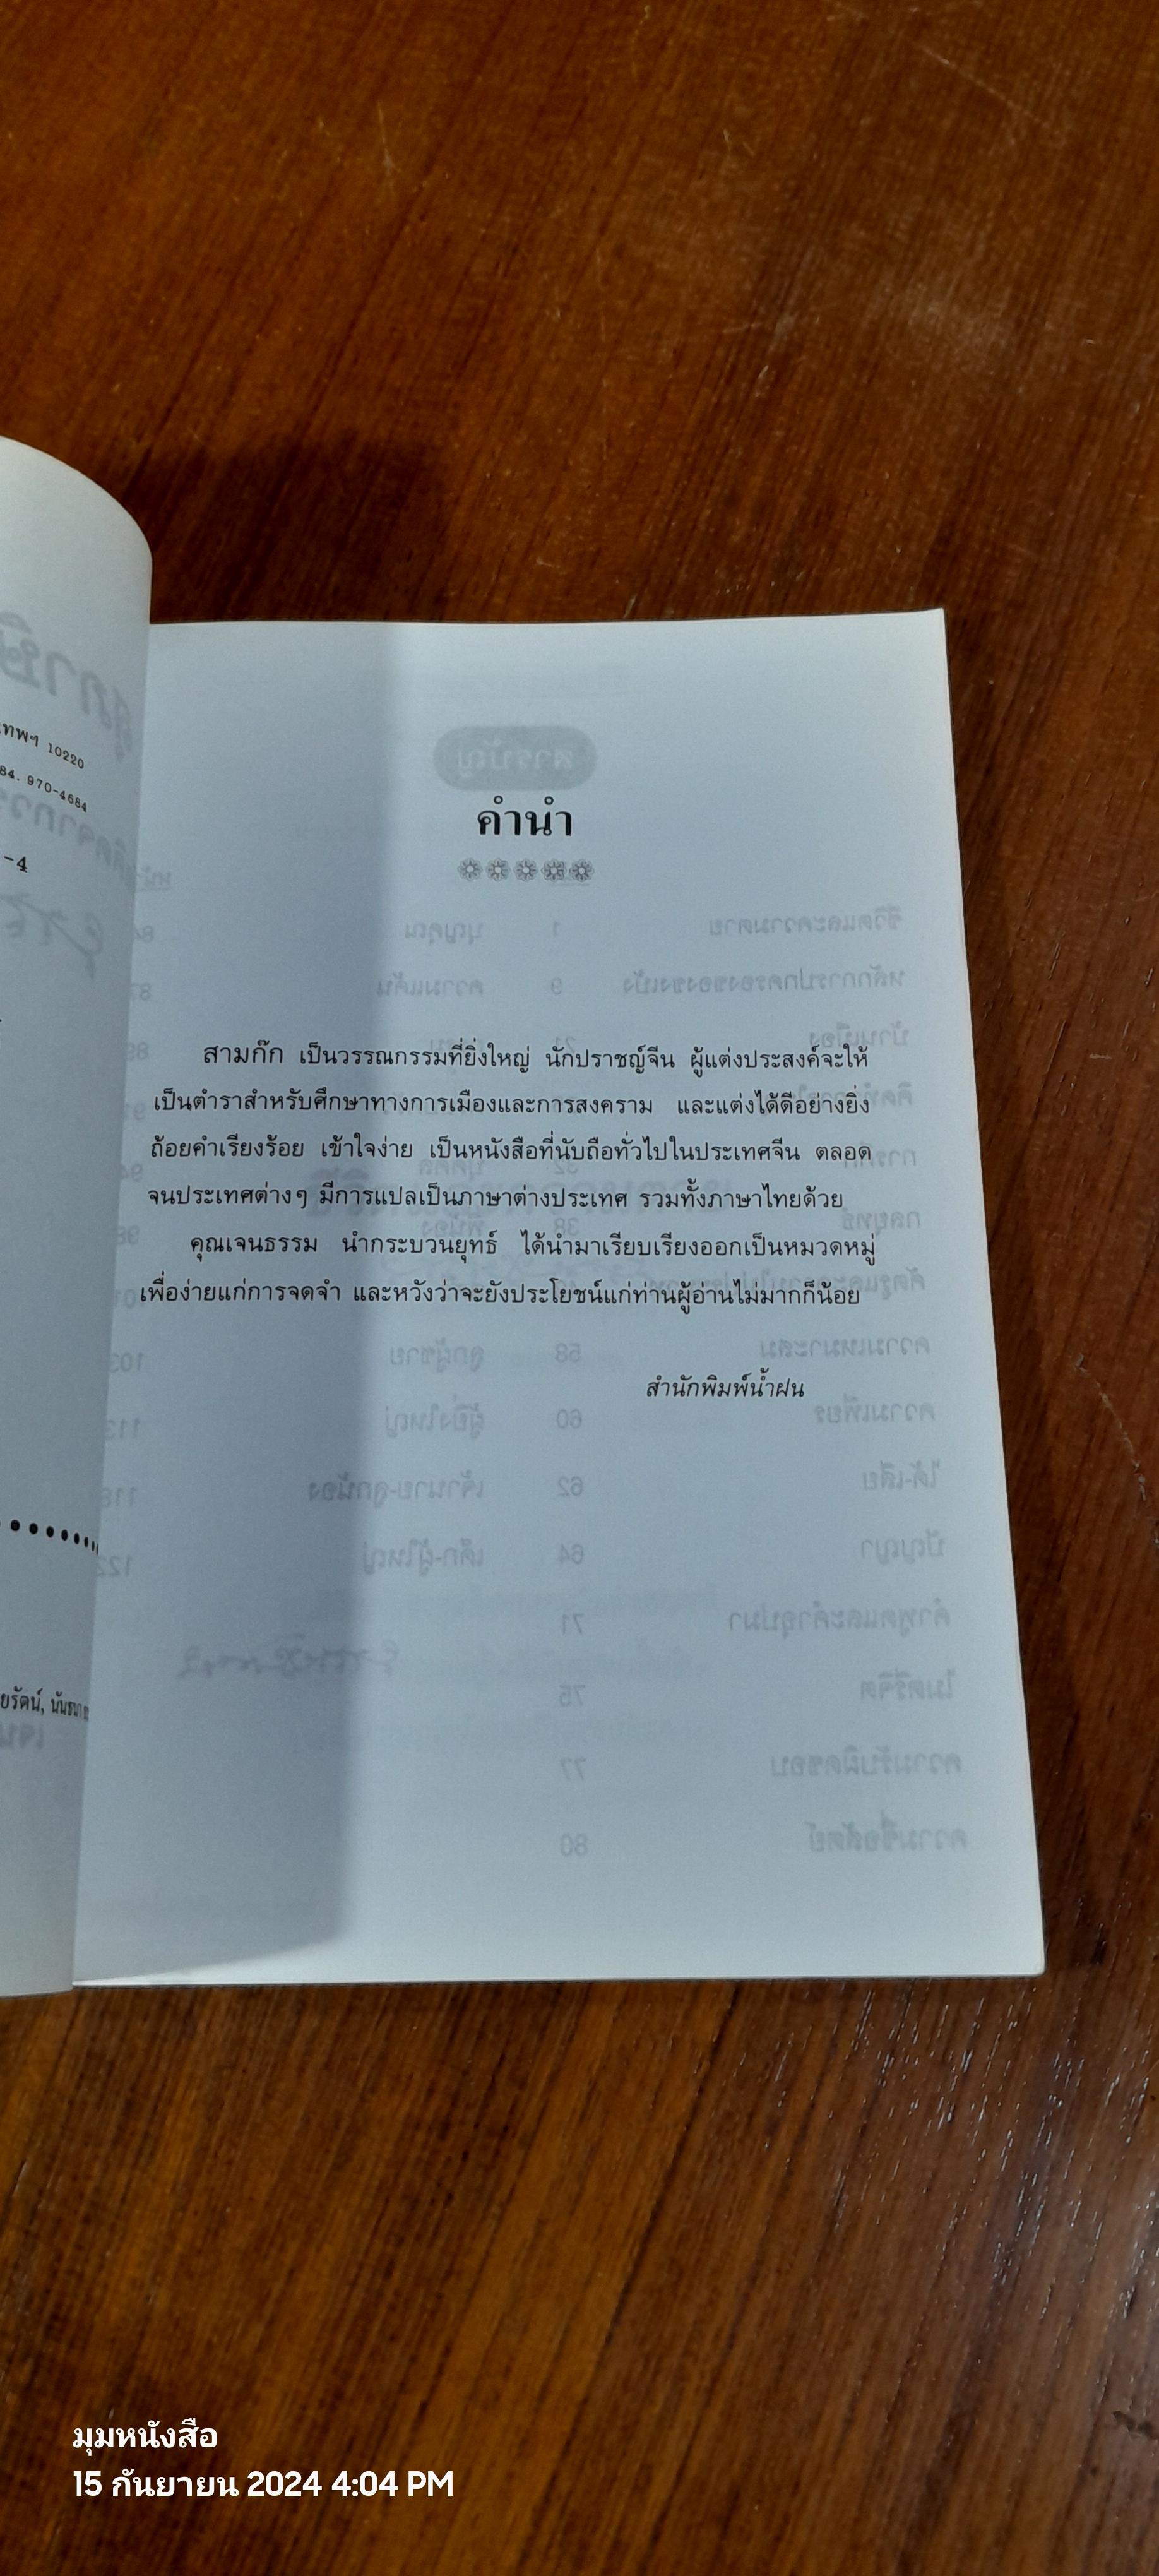 ทพฯ 10220
84. 970-4684
-4
ยรัตน์,
คำนำ
สามก๊ก เป็นวรรณกรรมที่ยิ่งใหญ่ นักปราชญ์จีน ผู้แต่งประสงค์จะให้
เป็นตำราสำหรับศึกษาทางการเมืองและการสงคราม และแต่งได้ดีอย่างยิ่ง
ถ้อยคำเรียงร้อย เข้าใจง่าย เป็นหนังสือที่นับถือทั่วไปในประเทศจีน ตลอด
จนประเทศต่างๆ มีการแปลเป็นภาษาต่างประเทศ รวมทั้งภาษาไทยด้วย
คุณเจนธรรม นำกระบวนยุทธ์ ได้นำมาเรียบเรียงออกเป็นหมวดหมู่
เพื่อง่ายแก่การจดจำ และหวังว่าจะยังประโยชน์แก่ท่านผู้อ่านไม่มากก็น้อย
สำนักพิมพ์น้ำฝน
มุมหนังสือ
15 กันยายน 2024 4:04 PM